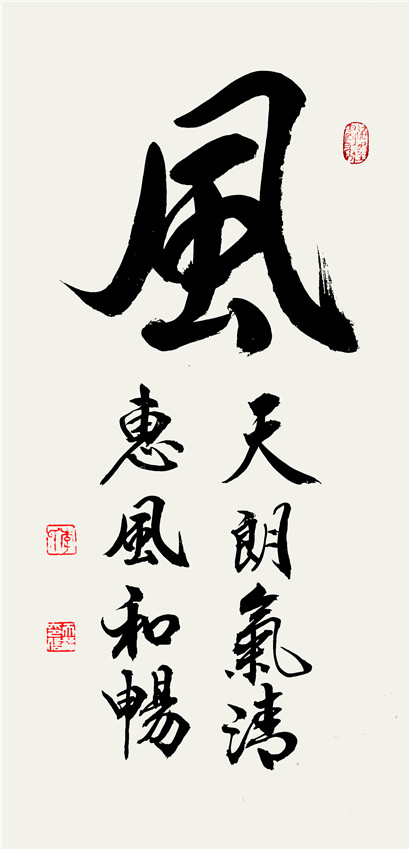 風
天朗氣清
惠風和暢